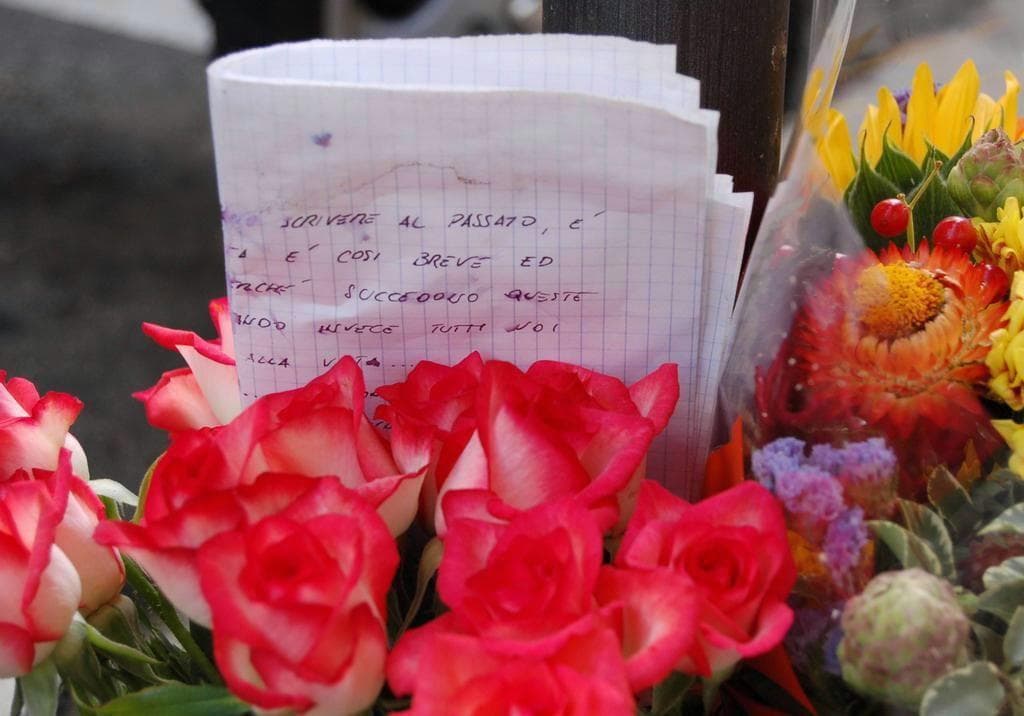 SCRIVERE AL PASSATO, É
A É COSI BREVE ED
RCHÉ SUCCEDONO QUESTE
NDO INVECE TUTTI NOI
ALLA VITA....